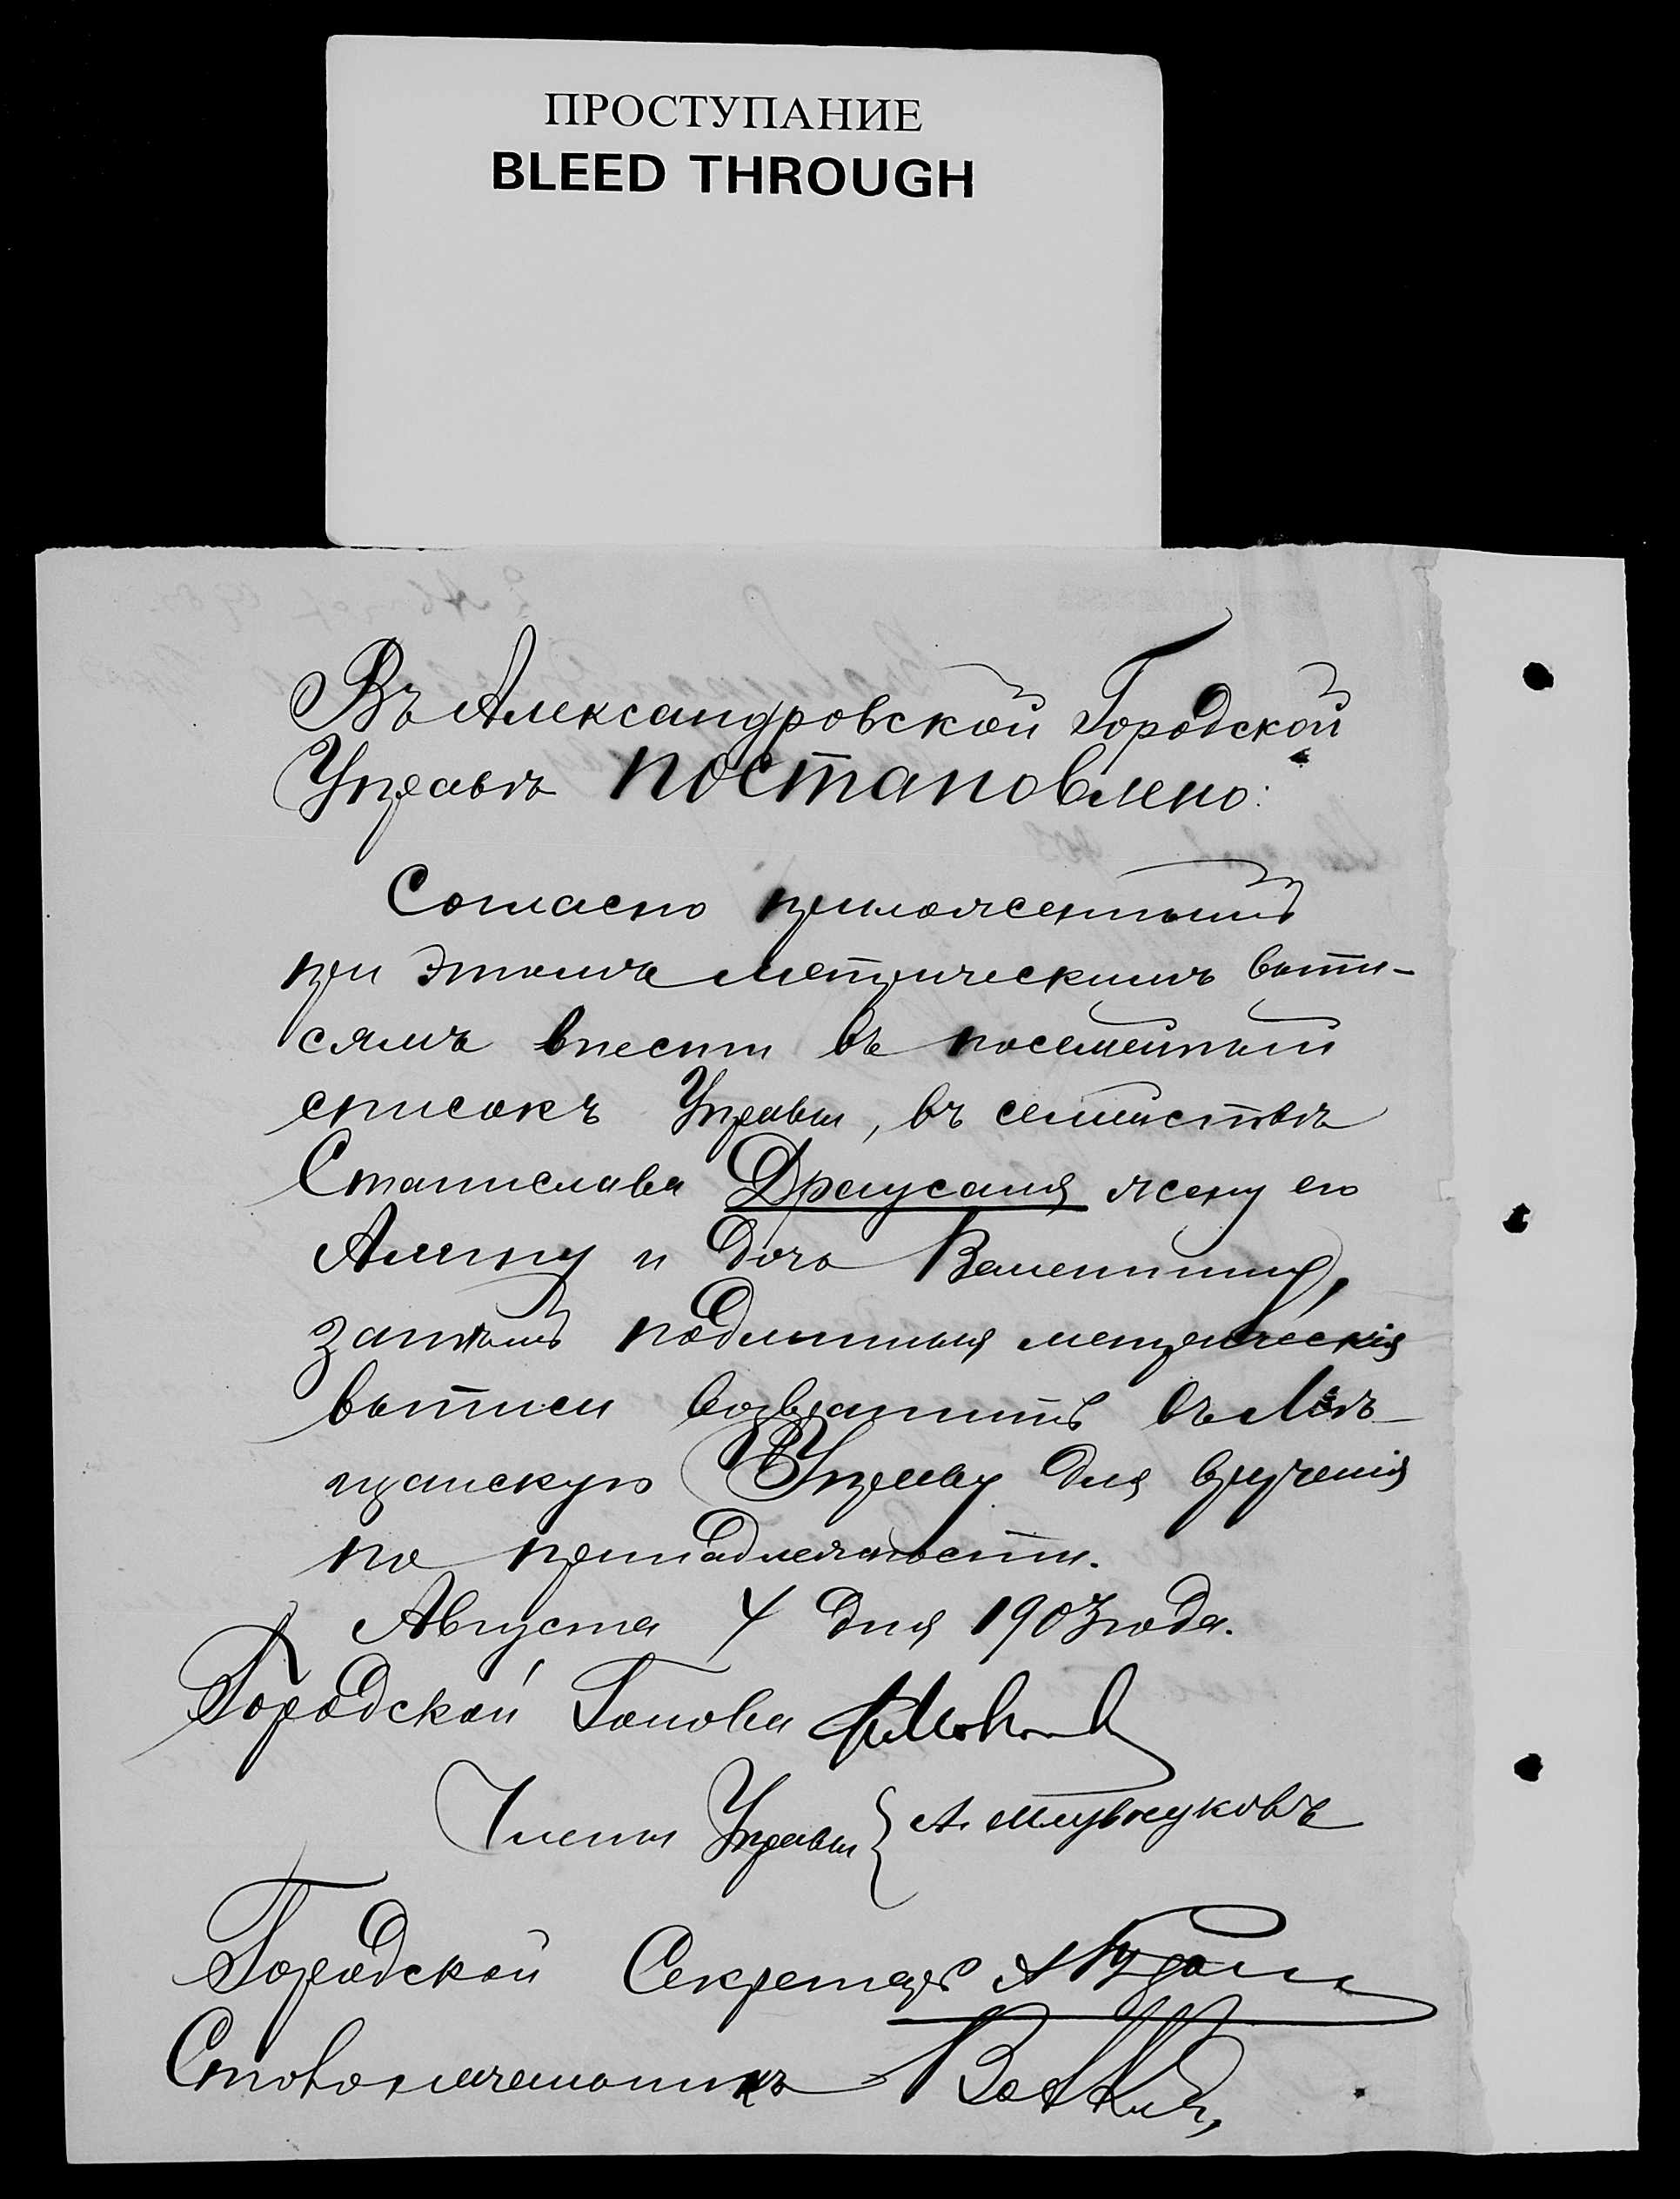 ПРОСТУПАНИЕ
BLEED THROUGH
Въ Александровской Городской
Управѣ постановлено:
Согласно приложеннымъ
при этомъ метрическимъ выпи-
сямъ внести въ посемейный
списокъ Управы, въ семействѣ
Станислава Драусаля жену его
Алину и дочь Валентину,
затѣмъ подлинныя метрическія
выписи возвратить въ Мѣ-
щанскую Управу для врученія
по принадлежности.
Августа 4 дня 1903 года.
Городской Голова
Члены Управы А.
Городской Секретарь А
Столоначальникъ